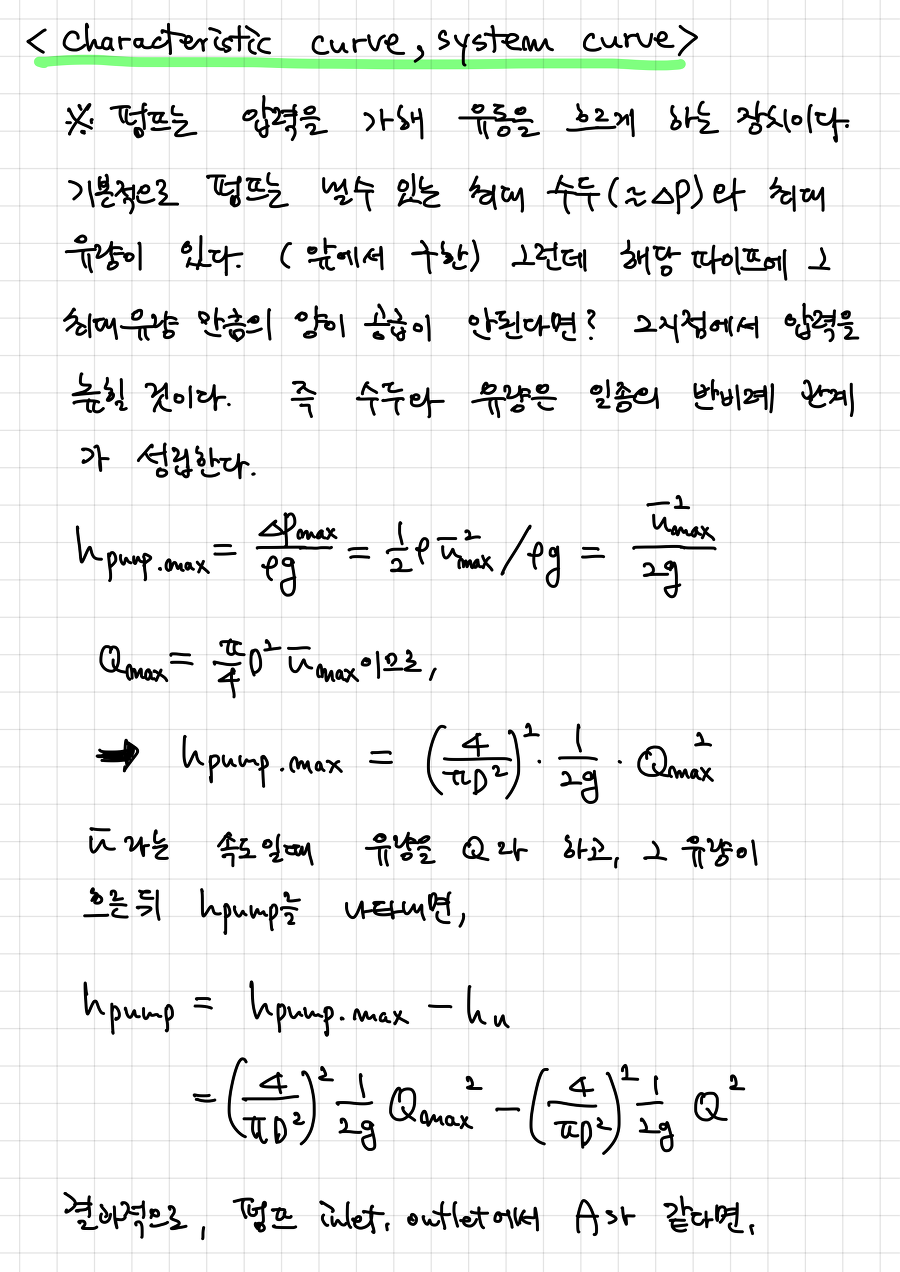 < characteristic curve, system curve>
※ 펌프는 압력을 가해 유동을 흐르게 하는 장치이다.
기본적으로 펌프는 낼수 있는 최대 수두(≈ΔP)와 최대
유량이 있다. (앞에서 구한) 그런데 해당 파이프에 그
최대유량 만큼의 양이 공급이 안된다면? 그지점에서 압력을
높힐 것이다. 즉 수두와 유량은 일종의 반비례 관계
가 성립한다.
h_pump.max = ΔP_max / ρg = 1/2 ρ ū_max² / ρg = ū_max² / 2g
Q_max = π/4 D² ū_max 이므로,
➡ h_pump.max = (4/πD²)² · 1/2g · Q_max²
ū 라는 속도일때 유량을 Q라 하고, 그 유량이
흐른뒤 h_pump를 나타내면,
h_pump = h_pump.max − h_u
= (4/πD²)² 1/2g Q_max² − (4/πD²)² 1/2g Q²
결과적으로, 펌프 inlet, outlet에서 A가 같다면,